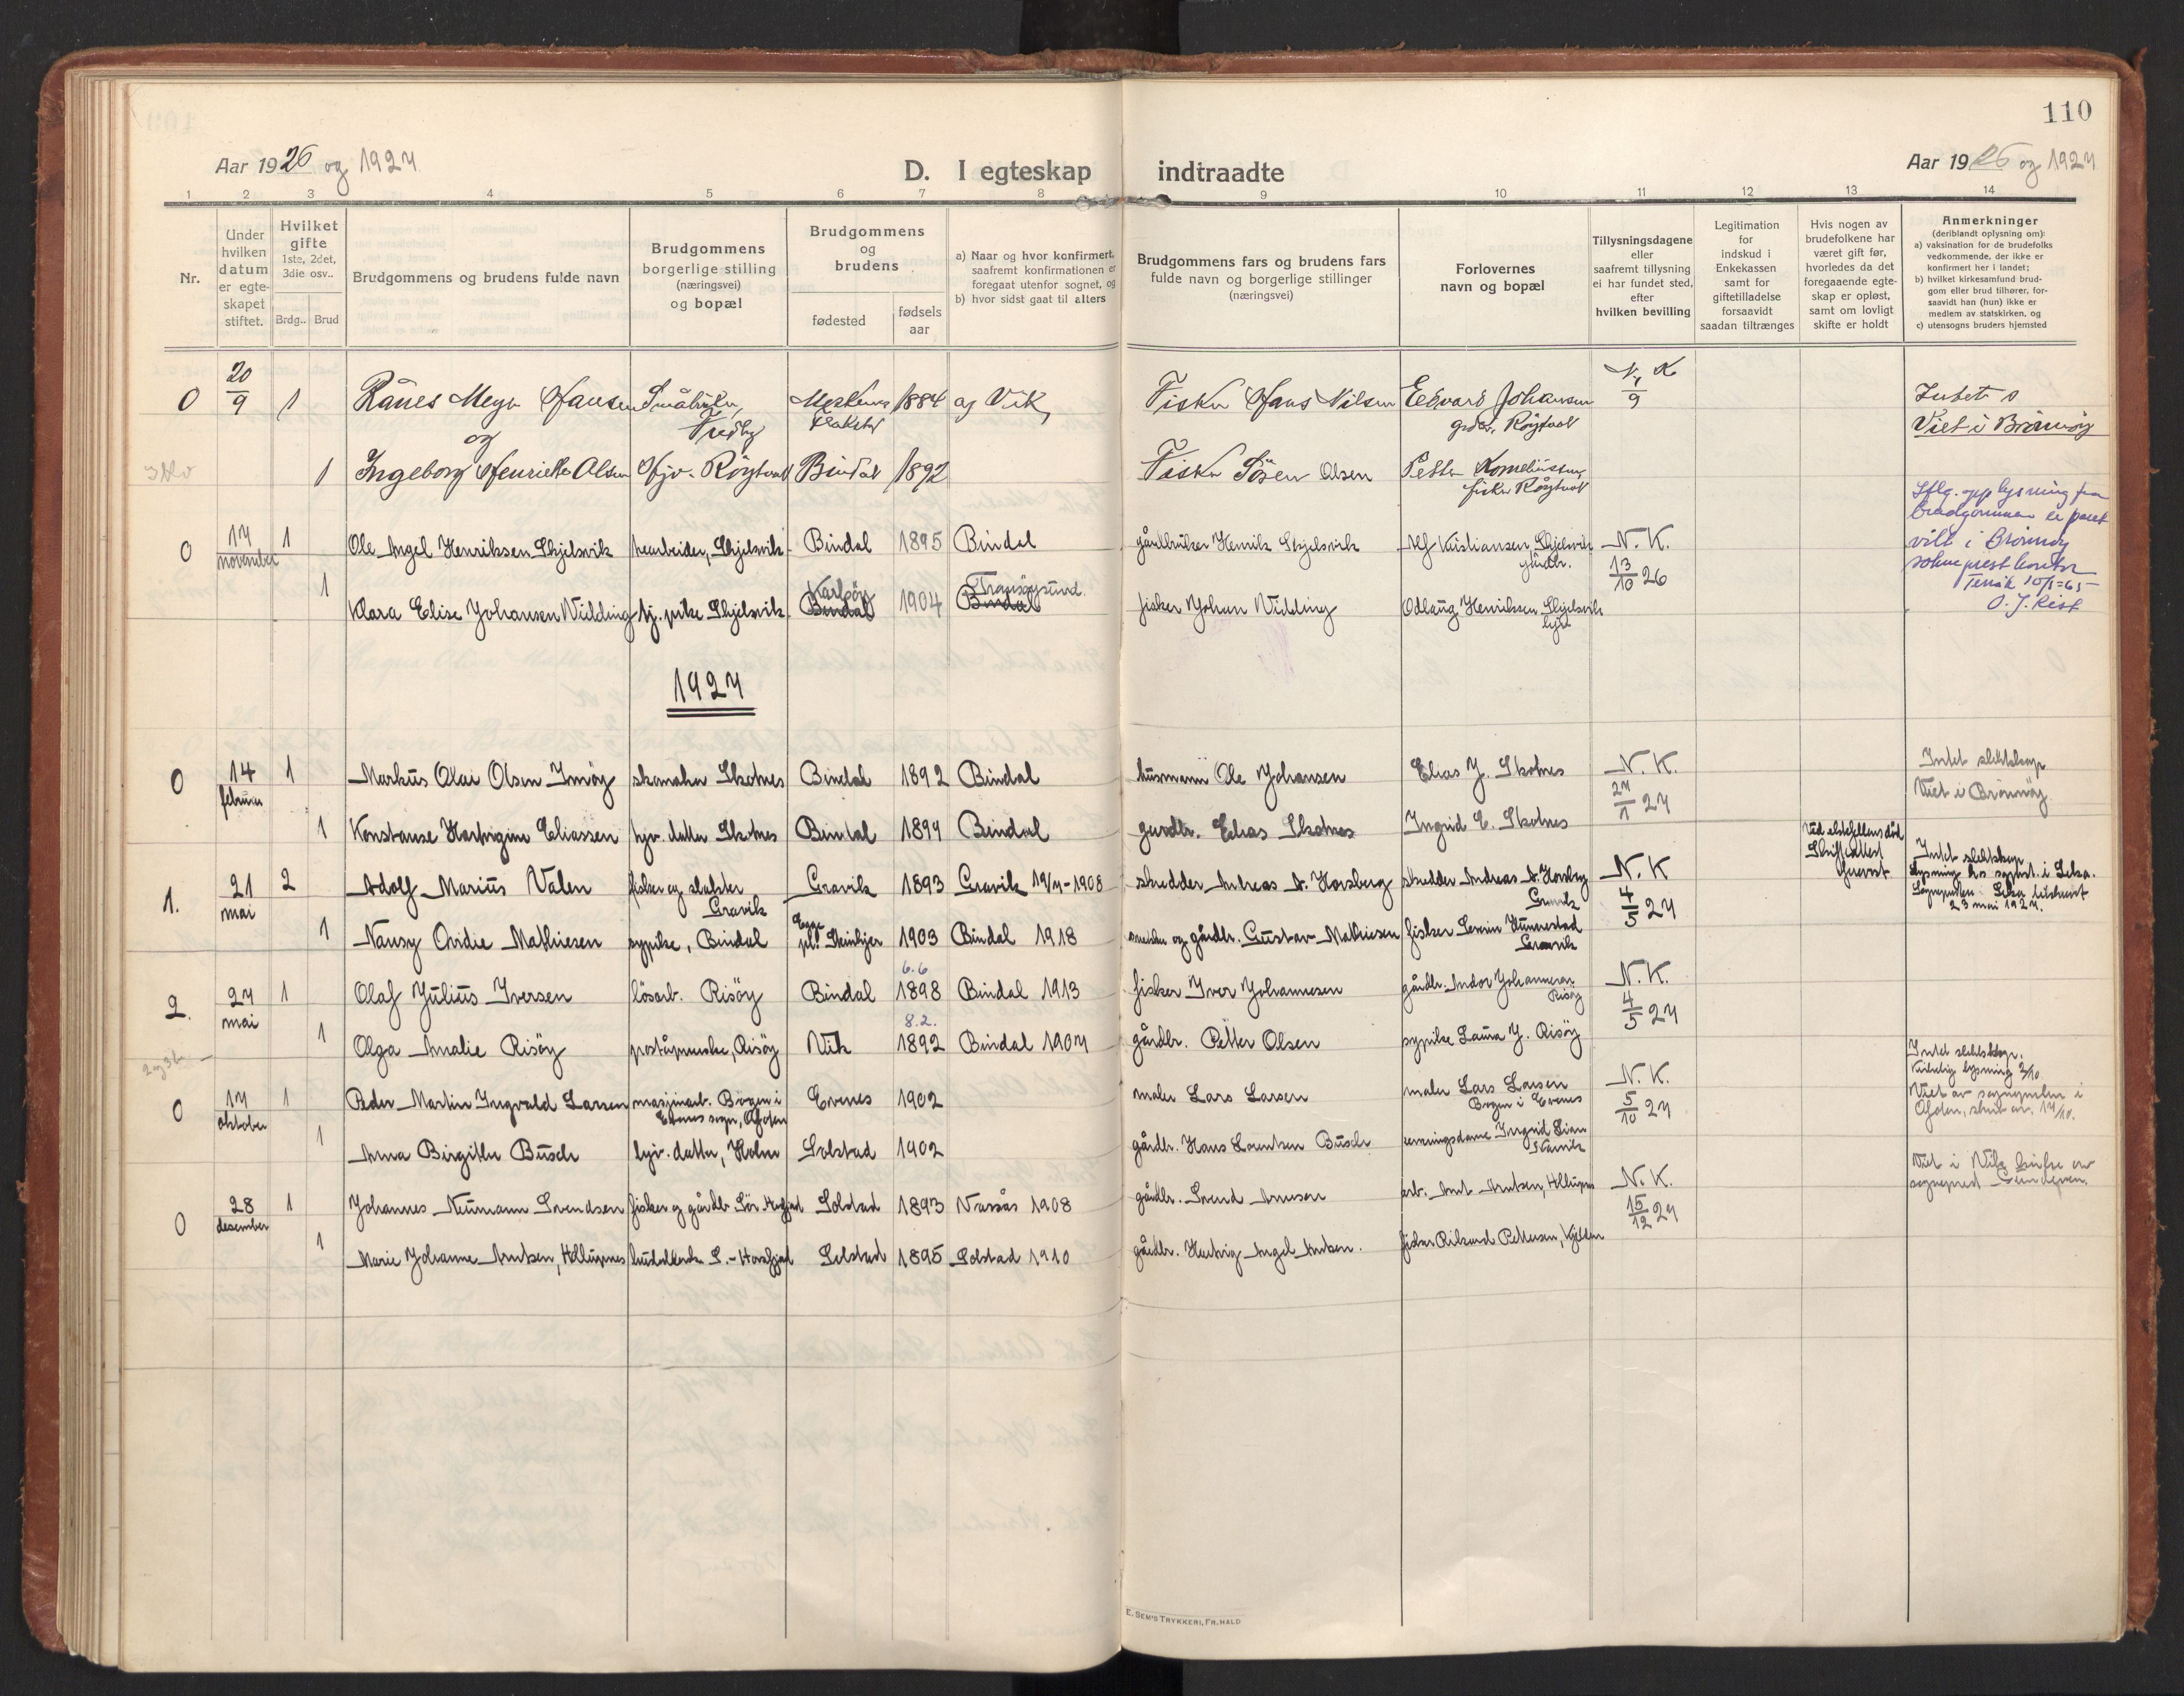 110
Aar 1926 og 1927
D. I egteskap indtraadte
Aar 1926 og 1927
1 2 3 4 5 6 7 8 9 10 11 12 13 14
Nr.
Under
hvilken
datum
er egte-
skapet
stiftet.
Hvilket
gifte
1ste, 2det,
3die osv..
Brdg.. Brud
Brudgommens og brudens fulde navn
Brudgommens
borgerlige stilling
(næringsvei)
og bopæl
Brudgommens
og
brudens
fødested
fødsels
aar
a) Naar og hvor konfirmert,
saafremt konfirmationen er
foregaat utenfor sognet, og
b) hvor sidst gaat til alters
Brudgommens fars og brudens fars
fulde navn og borgerlige stillinger
(næringsvei)
Forlovernes
navn og bopæl
Tillysningsdagene
eller
saafremt tillysning
ei har fundet sted,
efter
hvilken bevilling
Legitimation
for
indskud i
Enkekassen
samt for
giftetilladelse
forsaavidt
saadan tiltrænges
Hvis nogen av
brudefolkene har
været gift før,
hvorledes da det
foregaaende egte-
skap er opløst,
samt om lovligt
skifte er holdt
Anmerkninger
(deriblandt oplysning om):
a) vaksination for de brudefolks
vedkommende, der ikke er
konfirmert her i landet;
b) hvilket kirkesamfund brud-
gom eller brud tilhører, for-
saavidt han (hun) ikke er
medlem av statskirken, og
c) utensogns bruders hjemsted
0 20/9 1 Hansen 1884 Vik Fisker Hans Nilsen Edvard Johansen
grdbr. Røytvoll
Viet i Brønnøy
og
1 Ingeborg Henriette Olsen Røytvoll Bindal 1892 Fisker Sören Olsen Petter Korneliussen,
fisker Røytvoll
Iflg. opplysning fra
brudgommen er paret
viet i Brønnøy
sokneprestkontor
Terråk 10/1-65
0 17 november 1 Ole Angel Henriksen Skjelsvik Skjelsvik Bindal 1895 Bindal gårdbruker Henrik Skjelsvik Alf Kristiansen, Skjelsvik
gårdbr.
N. K.
13/10 26
Karlsøy
1 Klara Elise Johansen Widding tj. pike Skjelsvik Bindal 1904 Bindal fisker Johan Widding Odlaug Henriksen Skjelsvik
1927
0 14 februar 1 Markus Olai Olsen Imøy skomaker Skotnes Bindal 1892 Bindal husmann Ole Johansen Elias J. Skotnes N. K.
27/1 27
Intet slektskap
Viet i Brønnøy
1 Konstanse Hartvigine Eliassen hjv. datter Skotnes Bindal 1899 Bindal gårdbr. Elias Skotnes Ingrid E. Skotnes
1. 21 mai 2 Adolf Marius Valen fisker og slakter
Gravik
Gravik 1893 Gravik 19/7-1908 skredder Andreas A. Horsberg skredder Andreas A. Horsberg
Gravik
N. K
4/5 27
Ved ektefellens død
Skifteattest
Intet slektskap
Lysning hos sognepr. i Leka.
23 mai 1927.
1 Nansy Ovidie Mathiesen sypike, Bindal Steinkjer 1903 Bindal 1918 snekker og gårdbr. Gustav Mathiesen fisker Hunnestad
Gravik
2. 27 mai 1 Olaf Julius Iversen lösarb. Risöy Bindal 6.6 1898 Bindal 1913 fisker Iver Johannesen gårdbr. Andor Johannesen
Risöy
N. K.
4/5 27
1 Olga Amalie Risöy Risöy Vik 8.2. 1892 Bindal 1907 gårdbr. Petter Olsen sypike Laura J. Risöy
0 17 oktober 1 Peder Martin Ingvald Larsen maskinarb. Bogen i
Evenes sogn, Ofoten
Evenes 1902 maler Lars Larsen maler Lars Larsen
Bogen i Evenes
N. K.
5/10 27
Intet slektskap.
Kirkelig lysning 2/10.
Viet av sognepresten i
Ofoten, 17/10.
1 Anna Birgitte Busch hjv. datter, Holm Solstad 1902 gårdbr. Hans Lorentsen Busch Ingrid
0 28 desember 1 Johannes Neumann Svendsen fisker og gårdbr Sør-Horsfjord Solstad 1893 Vassås 1908 gårdbr. Svend Arnesen arb. Arnt Arntsen, N. K.
15/12 27
Viet i Vik kirke av
sogneprest
1 Marie Johanne Arntsen, S.-Horsfjord Solstad 1895 Solstad 1910 gårdbr. Hartvig Angel Arntsen. fisker Rikard Pettersen,
E. SEM'S TRYKKERI, FR. HALD